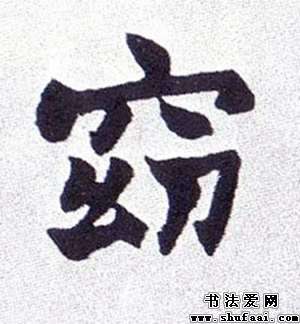 窈
书法爱网
www.shufaai.com